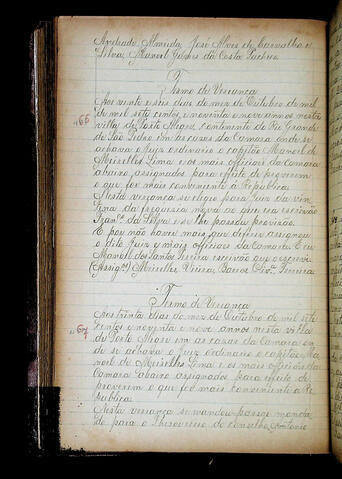 Andrade, Almeida, José Alves de Carvalho e
Silva, Manoel Gomes da Costa Pacheco
Termo de Vereança
Aos vinte e seis dias do mez de Outubro de mil
de mil sete centos, e noventa e nove annos nesta
"66
villa de Porto Alegre, continente do Rio Grande
de São Pedro em as casas da Camara onde se
achava o Juiz ordinario o capitão Manoel de
Meirelles Lima e os mais officiaes da Camara
abaixo assignados para effeito de proverem
o que for mais conveniente á Republica
Nesta vereança se elegeo para Juiz da vin
tena da freguesia nova ao para escrivão
Franco. da Silva e se lhe passou provisão.
E por não haver mais que deferir assignou
o dito Juiz e mais officiaes da Camara. E eu
Manoel dos Santos Pereira escrivão que o escrevi.
(Assigos) Meirelles, Vieira, Barros, Olivra, Pereira.
Termo de Vereança
Aos trinta dias do mez de Outubro de mil sete
"67
centos e noventa e nove annos nesta villa
de Porto Alegre em as casas da Camara on
de se achava o Juiz ordinario o capitão Ma
noel de Meirelles Lima e os mais officiaes da
Camara abaixo assignados para effeito de
proverem o que for mais conveniente á Re
publica.
Nesta vereança se mandou passar manda
do para o Thesoureiro do conselho, Antonio